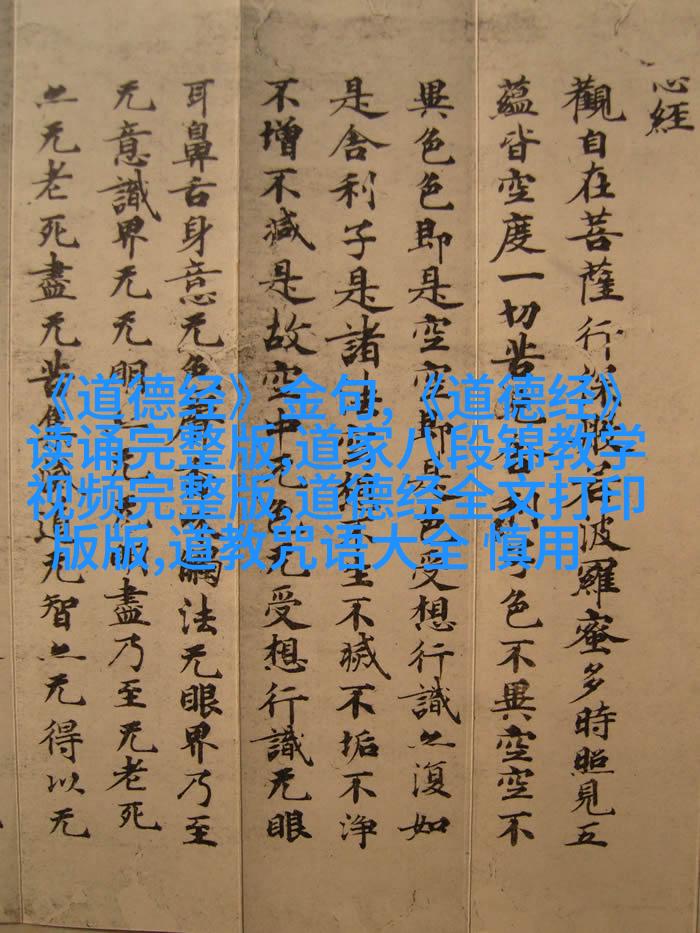 心經
觀自在菩薩行深般若波羅蜜多時照見五
蘊皆空度一切苦厄舍利子色不異空空不
異色色即是空空即是色受想行識亦復如
是舍利子是諸法空相不生不滅不垢不淨
不增不減是故空中无色无受想行識无眼
耳鼻舌身意无色觸法无眼界乃至
无意識界无无明亦无无明盡乃至无老死
亦无老死盡无苦集滅道无智亦无得以无
《道德经》金句,《道德经》
读诵完整版,道家八段锦教学
视频完整版,道德经全文打印
版版,道教咒语大全 慎用